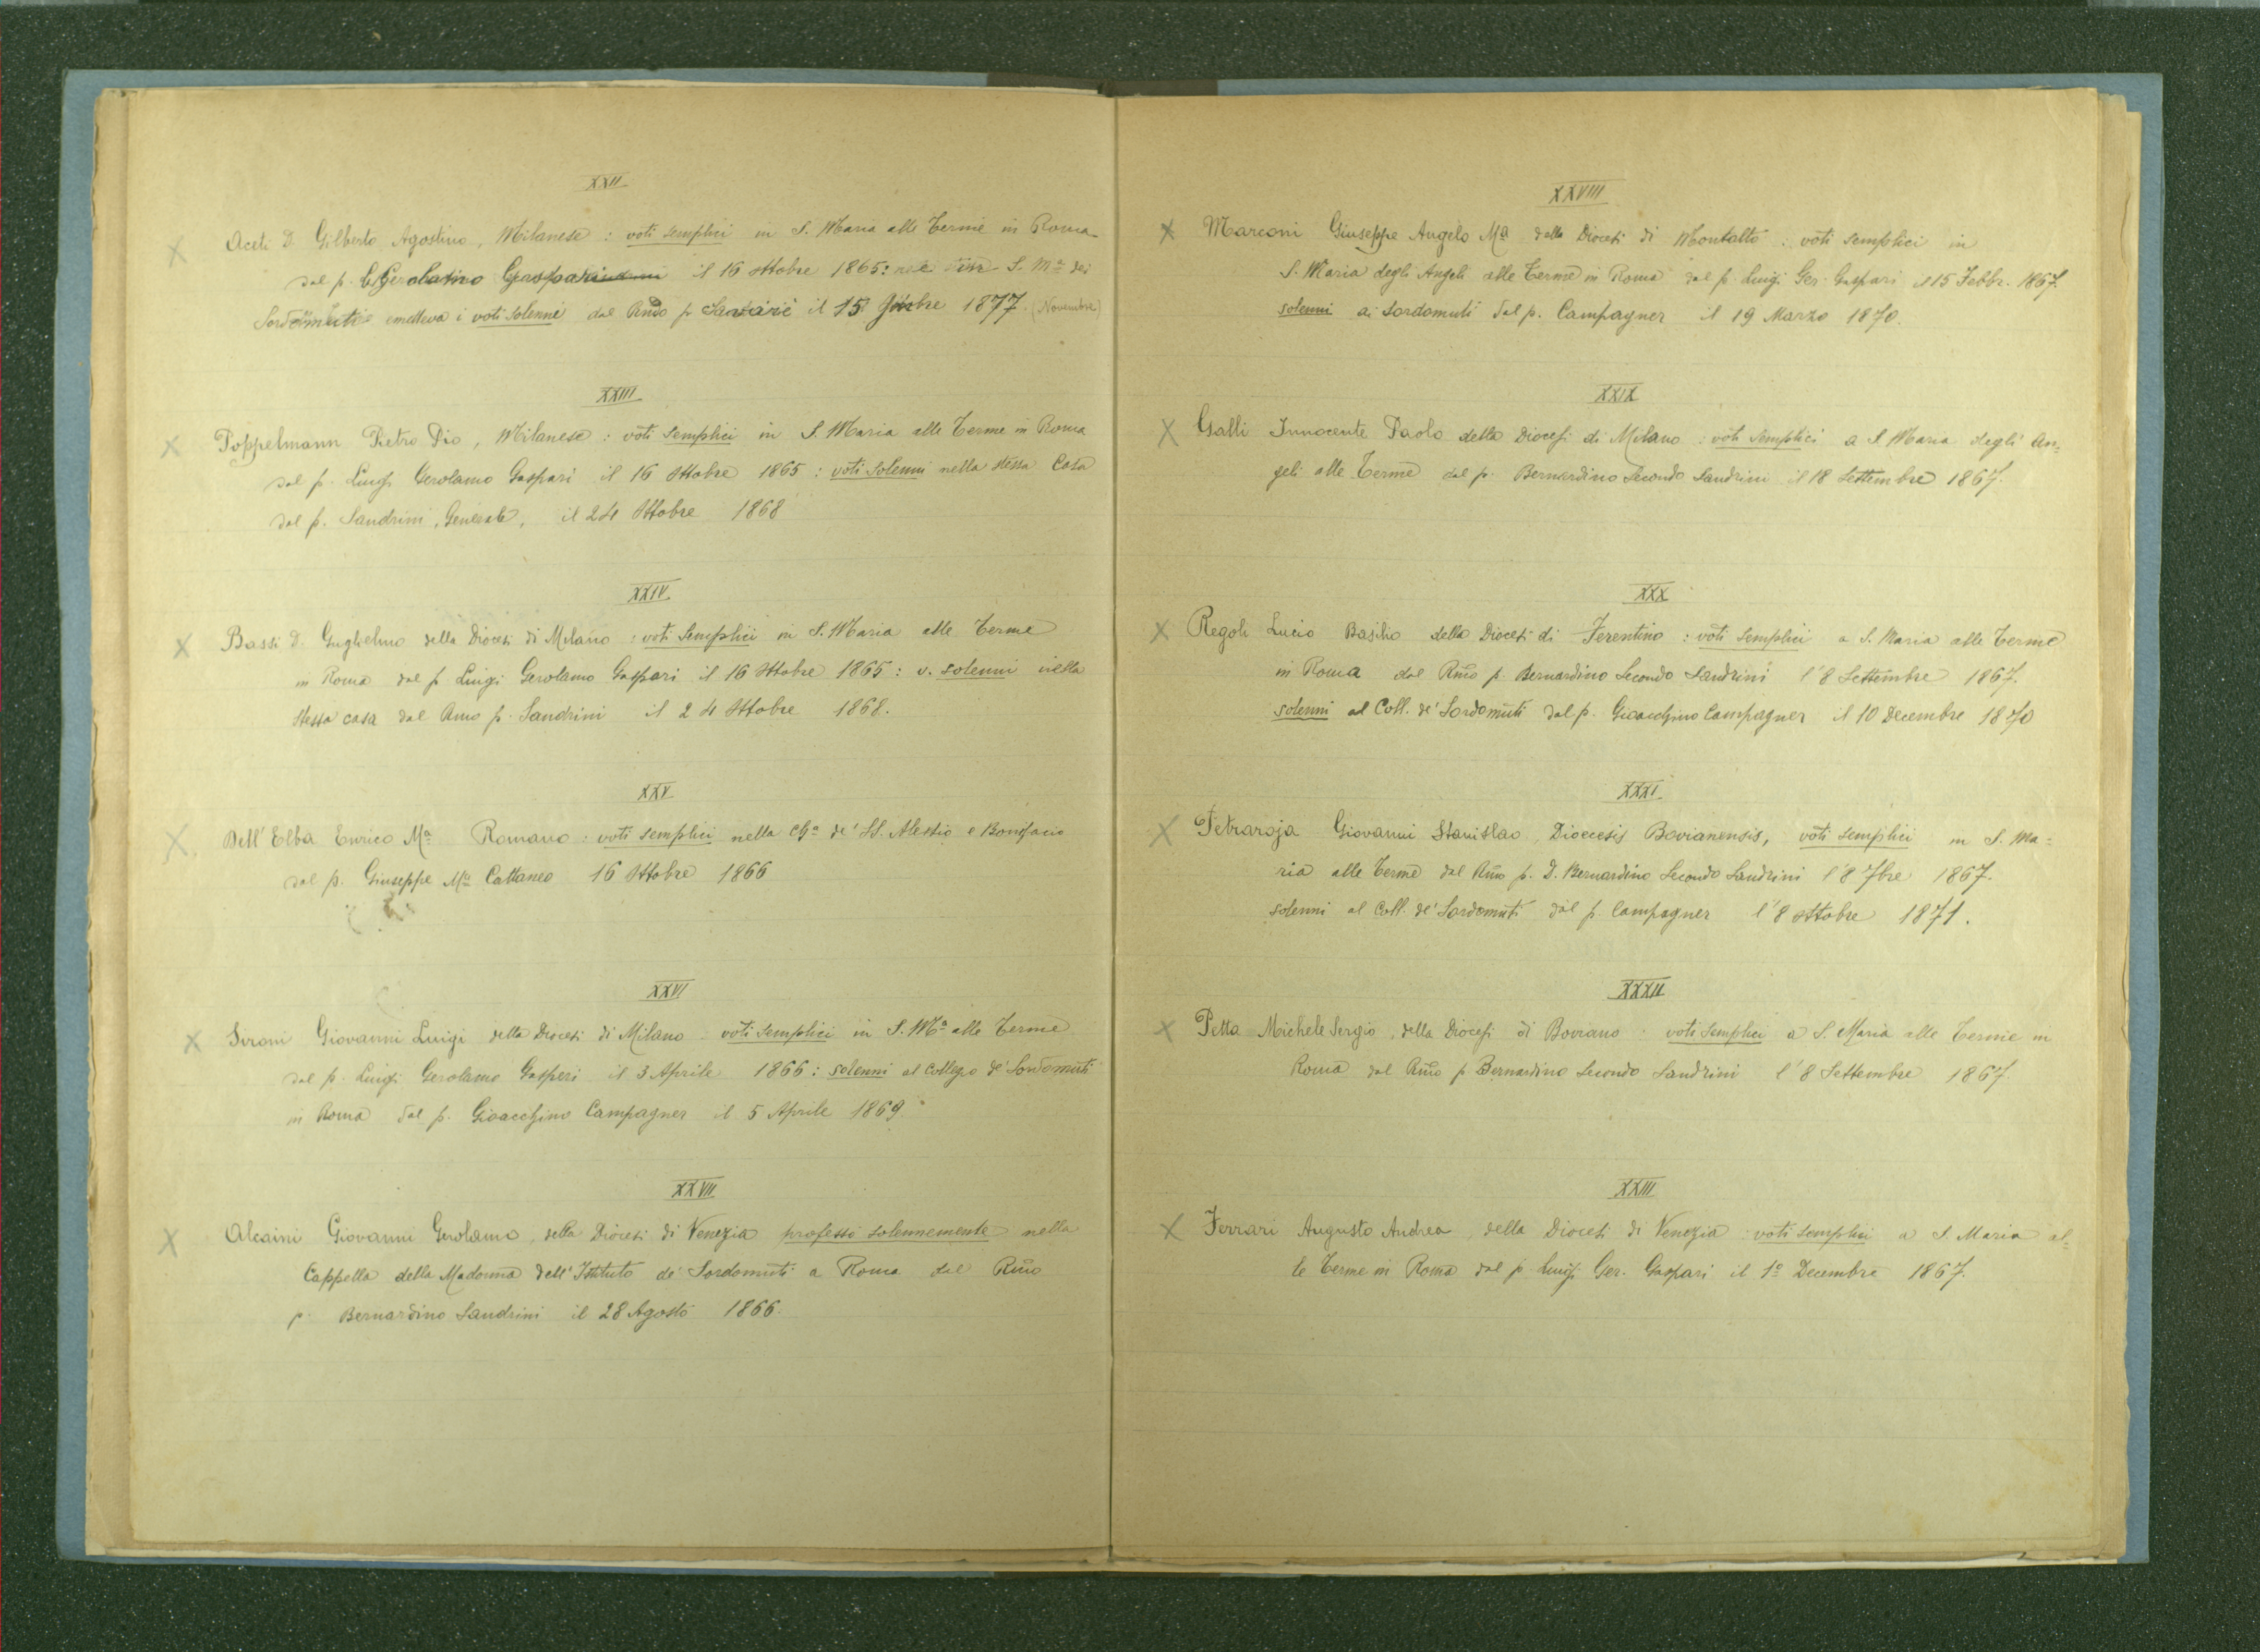 XXII
Aceti D. Gilberto Agostino, Milanese : voti semplici in S. Maria alle Terme in Roma
dal p. Gerolamo Gaspari il 16 Ottobre 1865: S. Mª dei
Sordomuti emetteva i voti solenni dal Rmo p. il 15 9mbre 1877 (Novembre)
XXIII
Poppelmann Pietro Pio, Milanese : voti semplici in S. Maria alle Terme in Roma
dal p. Luigi Gerolamo Gaspari il 16 Ottobre 1865 : voti solenni nella stessa Casa
dal p. Sandrini, Generale, il 24 Ottobre 1868
XXIV
Bassi D. Guglielmo della Diocesi di Milano : voti semplici in S. Maria alle Terme
in Roma dal p. Luigi Gerolamo Gaspari il 16 Ottobre 1865 : v. solenni nella
stessa casa dal Rmo p. Sandrini il 24 Ottobre 1868.
XXV
Dell' Elba Enrico Mª Romano : voti semplici nella Chª de' SS. Alessio e Bonifacio
dal p. Giuseppe Mª Cattaneo 16 Ottobre 1866
XXVI
Sironi Giovanni Luigi della Diocesi di Milano : voti semplici in S. Mª alle Terme
dal p. Luigi Gerolamo Gasperi il 3 Aprile 1866 : solenni al Collegio de' Sordomuti
in Roma dal p. Gioacchino Campagner il 5 Aprile 1869
XXVII
Alcaini Giovanni Gerolamo, della Diocesi di Venezia professò solennemente nella
Cappella della Madonna dell' Istituto de' Sordomuti a Roma dal Rmo
p. Bernardino Sandrini il 28 Agosto 1866.
XXVIII
Marconi Giuseppe Angelo Mª della Diocesi di Montalto : voti semplici in
S. Maria degli Angeli alle Terme in Roma dal p. Luigi Ger. Gaspari il 15 Febbr. 1867.
solenni ai Sordomuti dal p. Campagner il 19 Marzo 1870.
XXIX
Galli Innocente Paolo della Diocesi di Milano : voti semplici a S. Maria degli An=
geli alle Terme dal p. Bernardino Secondo Sandrini il 18 Settembre 1867.
XXX
Regoli Lucio Basilio della Diocesi di Ferentino : voti semplici a S. Maria alle Terme
in Roma dal Rmo p. Bernardino Secondo Sandrini l'8 Settembre 1867.
solenni al Coll. de' Sordomuti dal p. Gioacchino Campagner il 10 Decembre 1870
XXXI
Petraroja Giovanni Stanislao, Dioecesis Bovianensis, voti semplici in S. Ma=
ria alle Terme dal Rmo p. D. Bernardino Secondo Sandrini l'8 7bre 1867.
solenni al Coll. de' Sordomuti dal p. Campagner l'8 Ottobre 1871.
XXXII
Petta Michele Sergio, della Diocesi di Boviano : voti semplici a S. Maria alle Terme in
Roma dal Rmo p. Bernardino Secondo Sandrini l'8 Settembre 1867.
XXIII
Ferrari Augusto Andrea, della Diocesi di Venezia : voti semplici a S. Maria al=
le Terme in Roma dal p. Luigi Ger. Gaspari il 1º Decembre 1867.